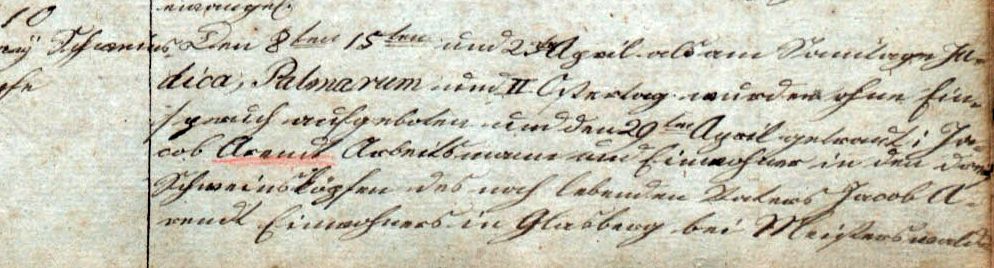 10
evangel.
Schweins Den 8ten 15ten und 23ten April als am Sonntage Ju-
dica, Palmarum und II Ostertag wurden ohne Ein-
spruch aufgeboten und den 29ten April getraut: Ja-
cob Arendt Arbeitsmann und Einwohner in den drei
Schweinsköpfen des noch lebenden Vaters Jacob A-
rendt Einwohners in Glasberg bei Meisterswalde